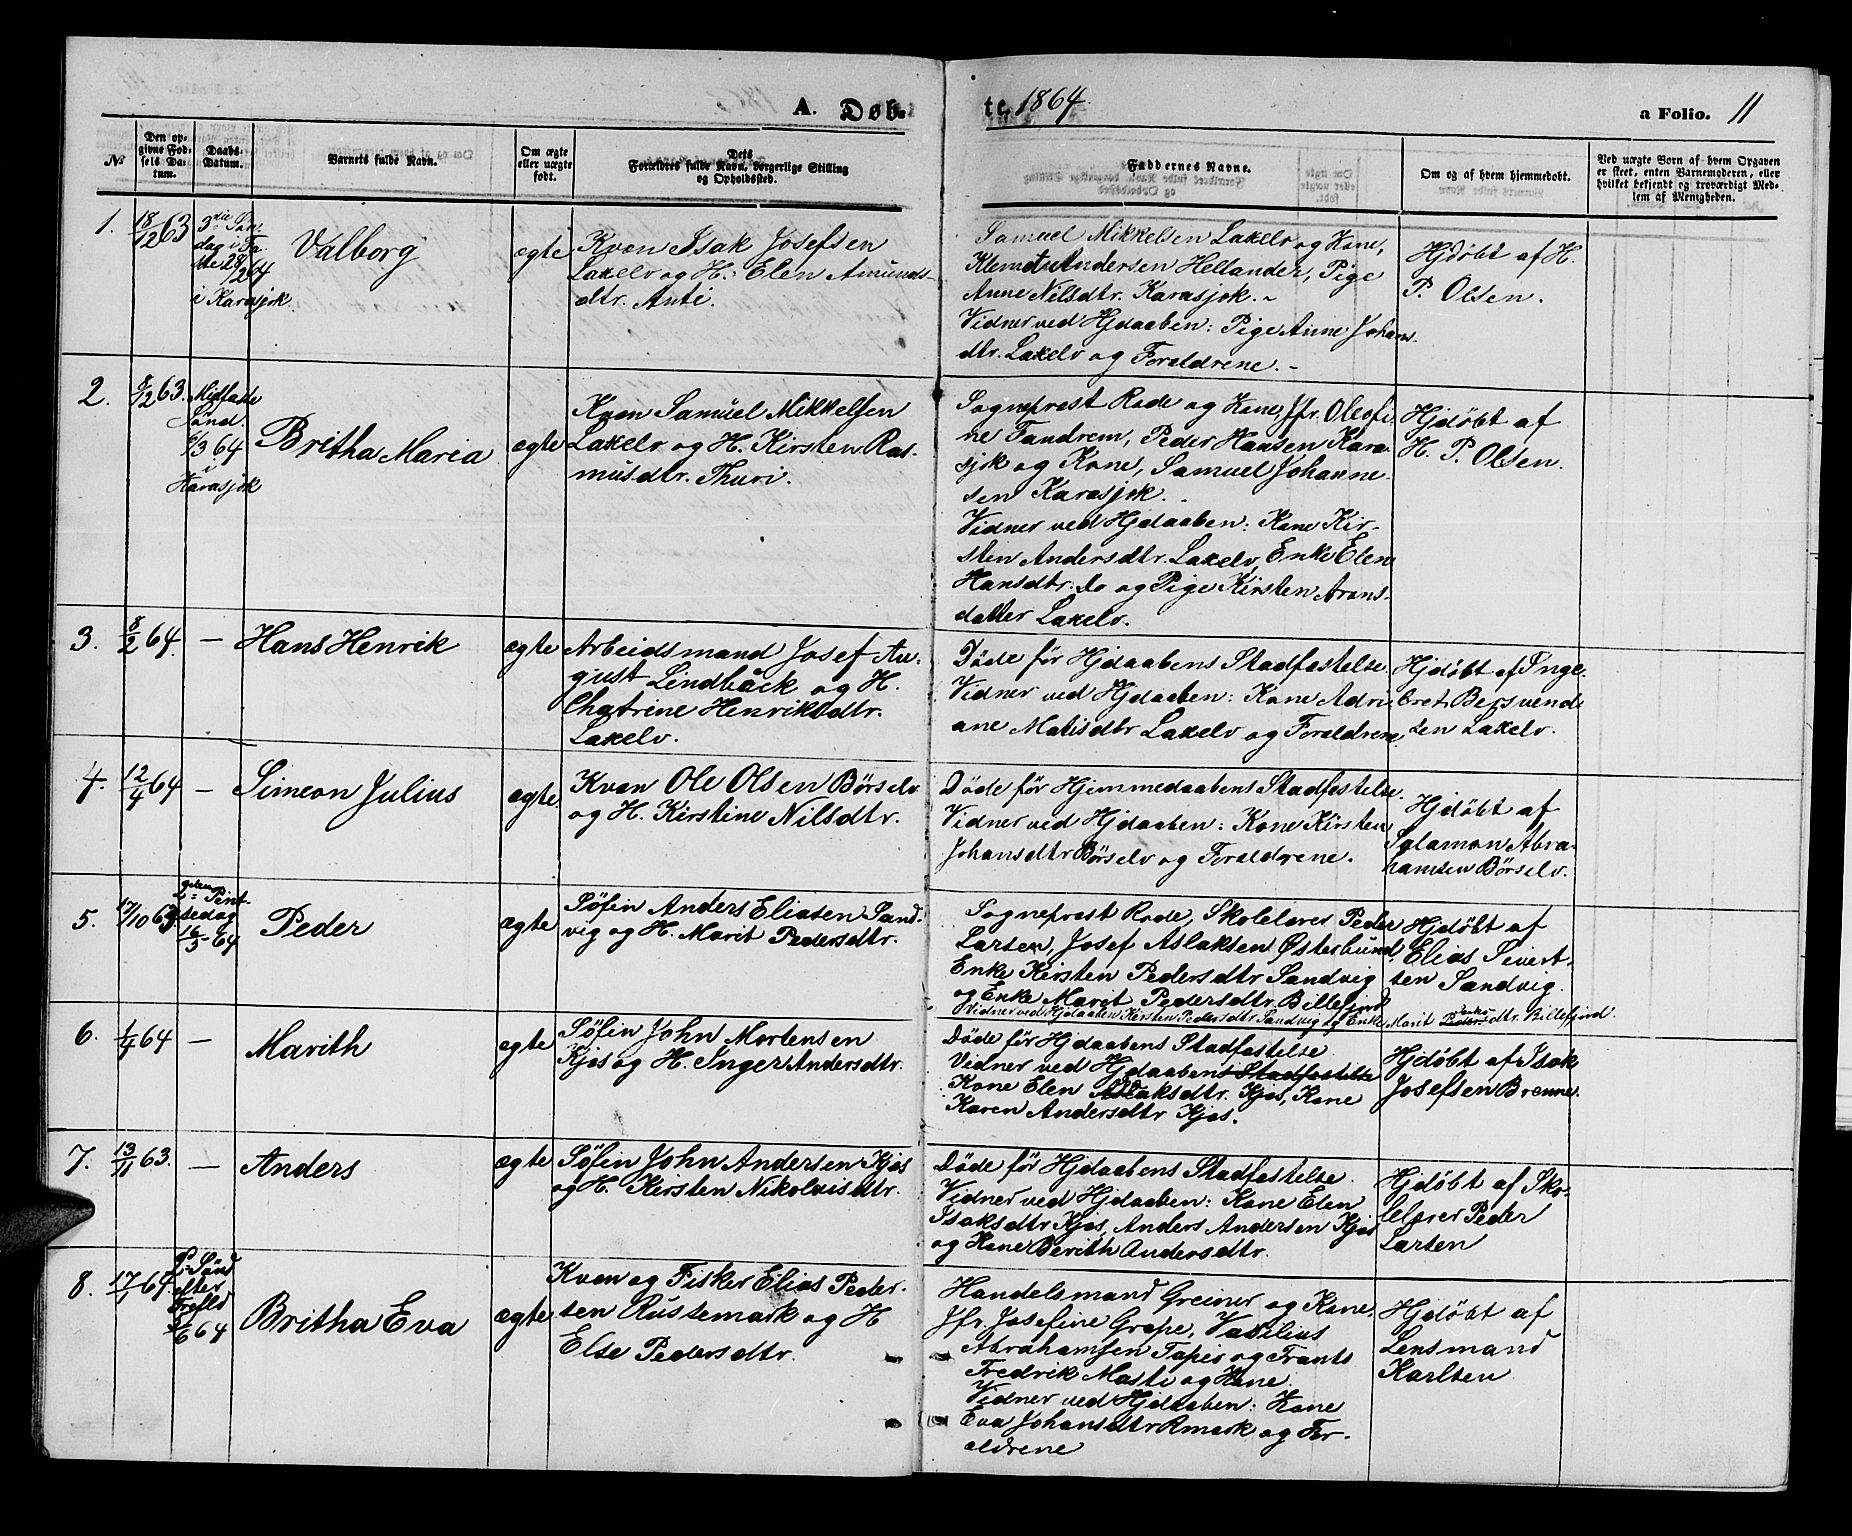 A. Døb-
te 1864.
a Folio. 11
№
Den op-
givne Fød-
sels Da-
tum.
Daabs-
Datum.
Barnets fulde Navn.
Om ægte
eller uægte
født.
Dets
Forældres fulde Navn, borgerlige Stilling
og Opholdssted.
Faddernes Navne.
Om og af hvem hjemmedøbt.
Ved uægte Børn af hvem Opgaven
er skeet, enten Barnemoderen, eller
hvilket bekjendt og troværdigt Med-
lem af Menigheden.
1.
18/12 63
3die Søn-
dag i Fa-
ste 28/2 64
i Karasjok.
Valborg
ægte
Kvæn Isak Josefsen
Lakelv og H. Elen Amunds-
dtr. Anti.
Samuel Mikkelsen Lakelv og Kone,
Klemet Andersen Hellander, Pige
Anne Nilsdtr. Karasjok. -
Vidner ved Hjdaaben: Pige Anne Johans-
dtr. Lakelv og Forældrene. -
Hjdøbt af H.
P. Olsen.
2.
8/12 63.
Midfaste
Sønd.
6/3 64
i
Karasjok
Britha Maria
ægte
Kvæn Samuel Mikkelsen
Lakelv og H. Kirsten Ras-
musdtr. Thuri.
Sogneprest Rode og Kone, Jfr. Oleofi-
ne Fandrem, Peder Hansen Kara-
sjok og Kone, Samuel Johanne-
sen Karasjok. -
Vidner ved Hjdaaben: Kone Kir-
sten Andersdtr. Lakelv, Enke Elen
Hansdtr. Do og Pige Kirsten Arons-
datter Lakelv.
Hjdøbt af
H. P. Olsen.
3.
8/2 64.
—
Hans Henrik
ægte
Arbeidsmand Josef Au-
gust Lindbäck og H.
Chatrine Henriksdtr.
Lakelv.
Døde før Hjdaabens Stadfæstelse
Vidner ved Hjdaaben: Kone Adri-
ane Matisdtr Lakelv og Forældrene.
Hjdøbt af Inge-
bret Bersvend-
sen Lakelv.
4.
12/4 64
—
Simeon Julius
ægte
Kvæn Ole Olsen Børselv
og H. Kirstine Nilsdtr.
Døde før Hjemmedaabens Stadfæstelse.
Vidner ved Hjdaaben: Kone Kirsten
Johansdtr Børselv og Forældrene.
Hjdøbt af
Salamon Abra-
hamsen Børselv.
5.
17/10 63.
2den Pint-
sedag
16/5 - 64
Peder
ægte
Søfin Anders Eliasen Sand-
vig og H. Marit Pedersdtr.
Sogneprest Rode, Skolelærer Peder
Larsen, Josef Aslaksen Østerbund,
Enke Kirsten Pedersdtr Sandvig
og Enke Marit Pedersdtr. Billefjord
Vidner ved Hjdaaben Kirsten Pedersdtr Sandvig og Enke Marit Pedersdtr. Billefjord.
Hjdøbt af
Elias Sivert-
sen Sandvig.
6.
1/4 64
—
Marith
ægte
Søfin John Mortensen
Kjæs og H. Inger Andersdtr.
Døde før Hjdaabens Stadfæstelse
Vidner ved Hjdaabens Stadfæstelse
Kone Elen Aslaksdtr. Kjæs, Kone
Karen Andersdtr Kjæs.
Hjdøbt af Isak
Josefsen Brenne.
7.
13/11 63.
—
Anders
ægte
Søfin John Andersen Kjæs
og H. Kirsten Nikolaisdtr.
Døde før Hjdaabens Stadfæstelse.
Vidner ved Hjdaaben: Kone Elen
Isaksdtr Kjæs, Anders Andersen Kjæs
og Kone Berith Andersdtr.
Hjdøbt af Sko-
lelærer Peder
Larsen
8.
17/1 64.
2. Sønd
efter
Trefld
5/6 64
Britha Eva
ægte
Kvæn og Fisker Elias Peder-
sen Rustemark og H
Else Pedersdtr.
Handelsmand Greiner og Kone,
Jfr. Josefine Grape, Vasilius
Abrahamsen Tapio og Frants
Fredrik Masti og Kone.
Vidner ved Hjdaaben: Kone
Eva Johansdtr Rmark og For-
ældrene
Hjdøbt af
Lensmand
Karlsen